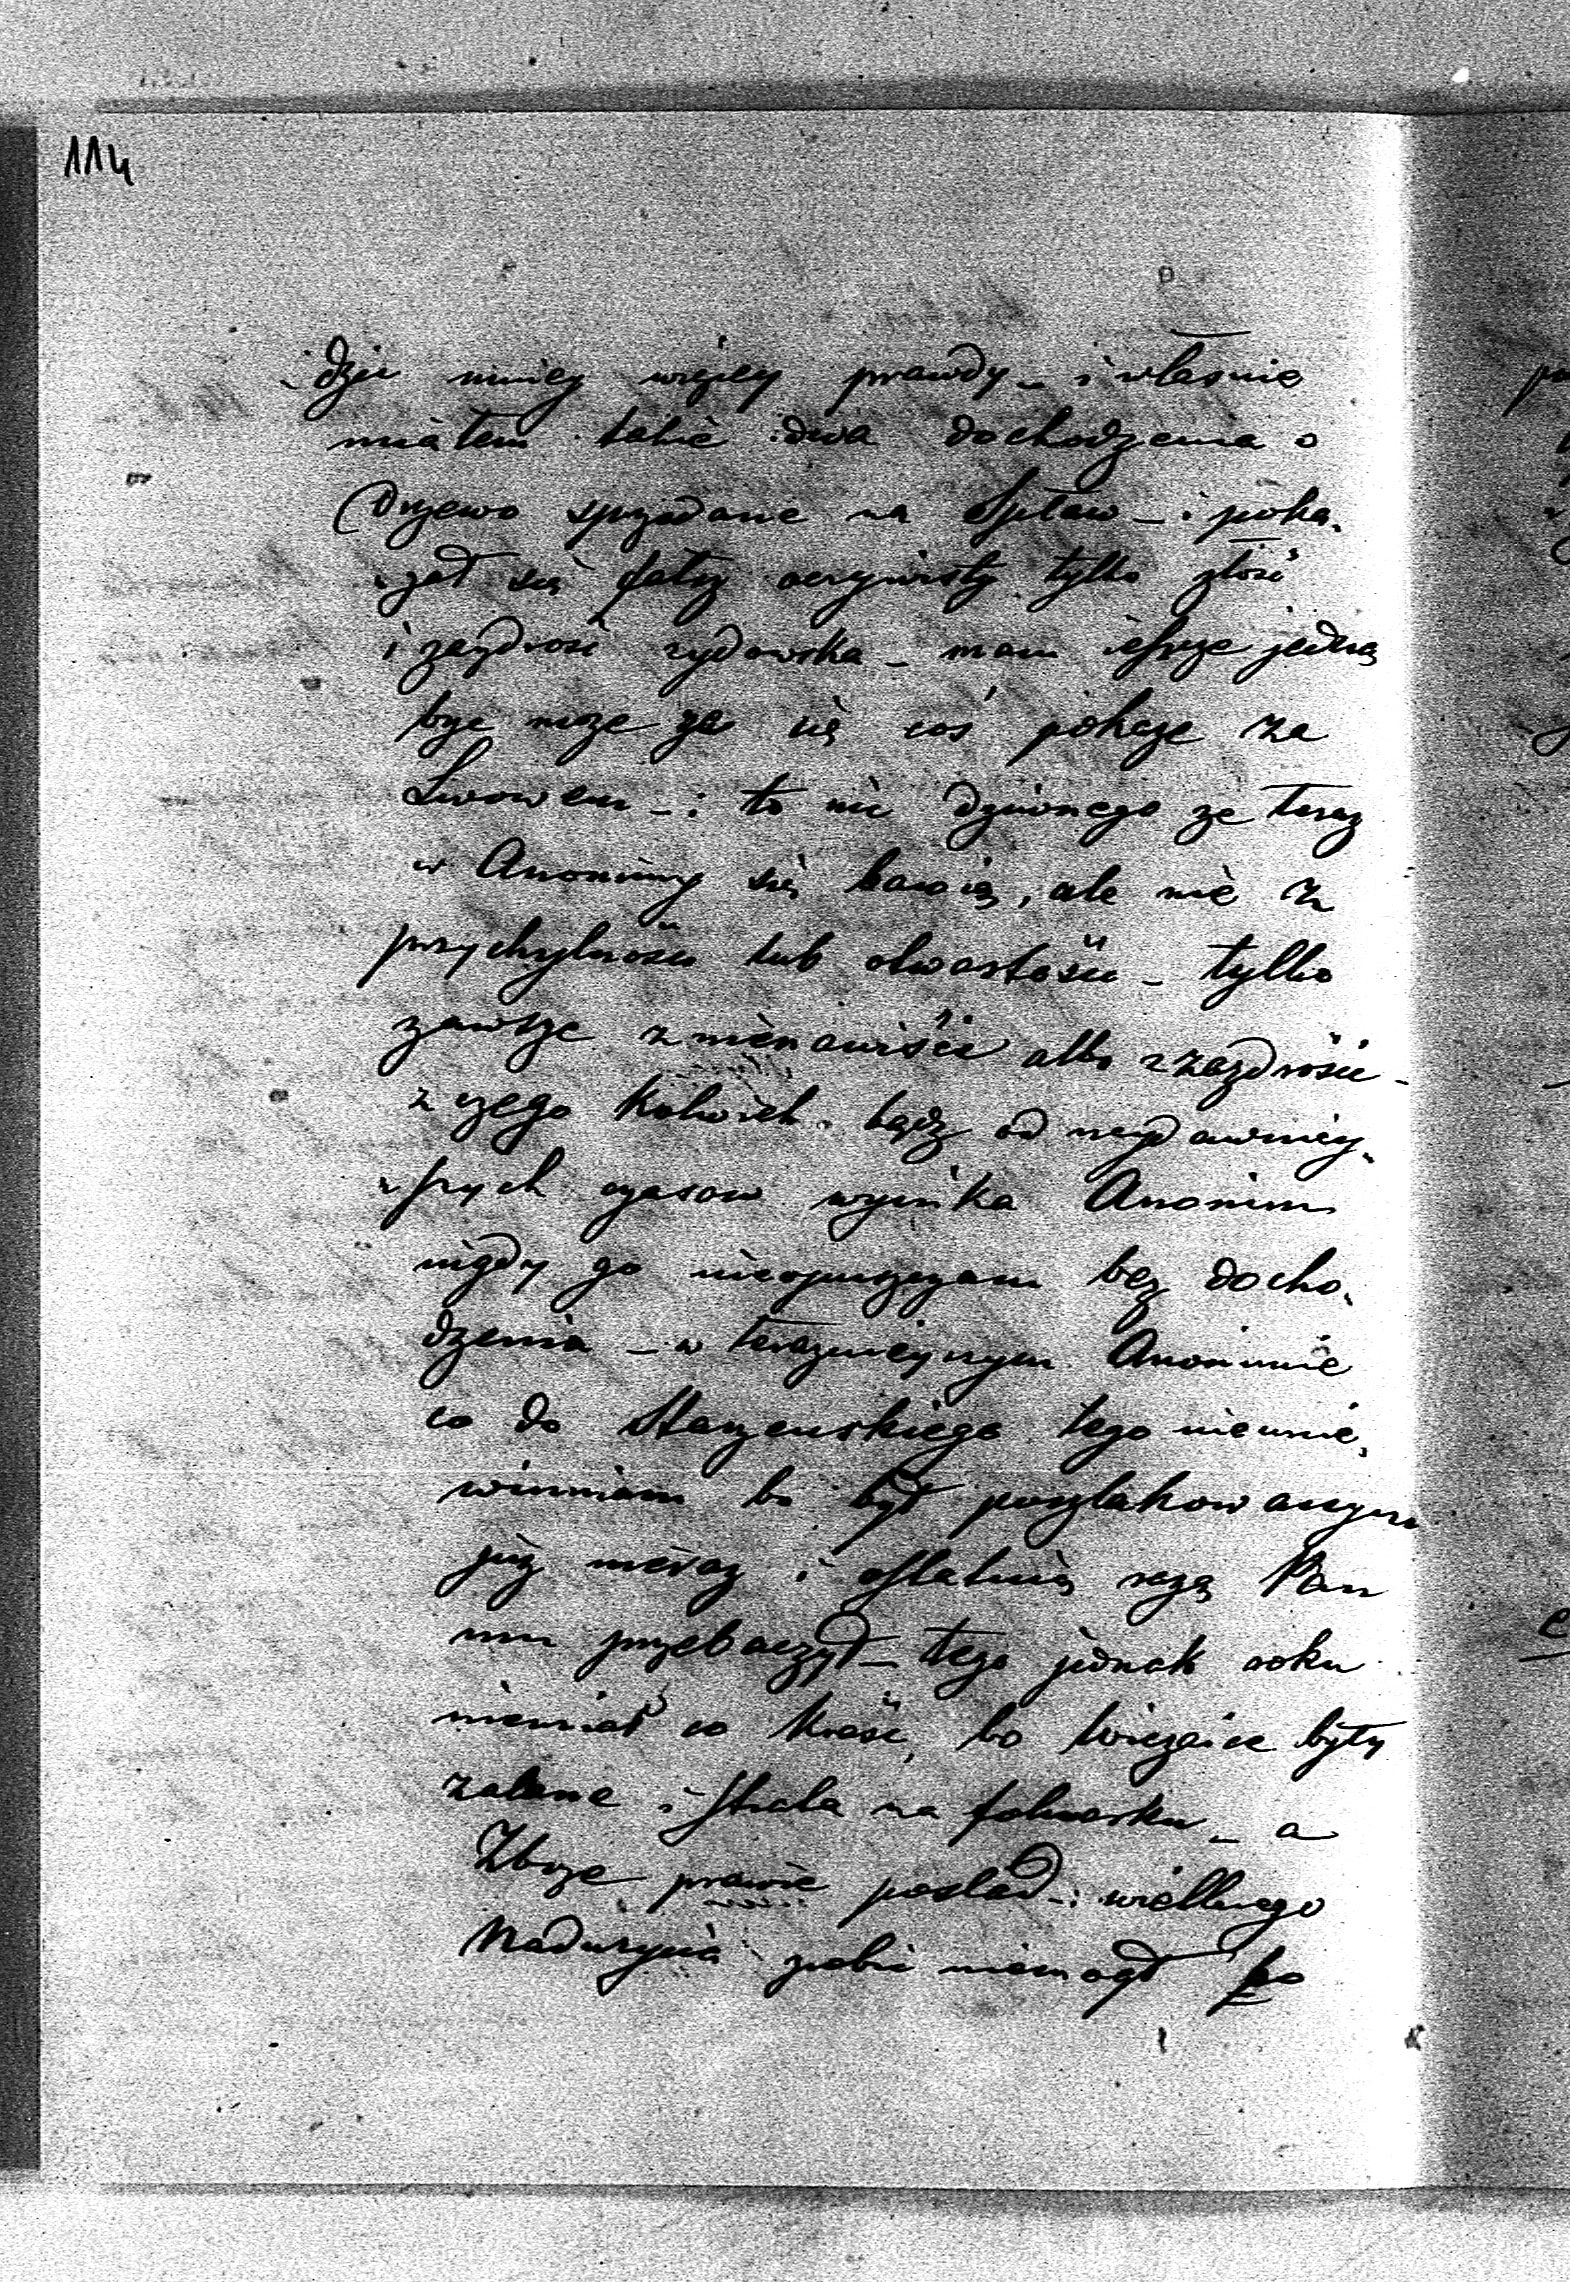 114
-dzie mniey więcey prawdy – i własnie
miałem takie dwa dochodzenia o
Drzewo sprzedane na Spław – i poka-
-zał się fałsz oczywisty tylko złość
i zazdrość zydowska – mam ieszcze jedną
byc moze ze się coś pokaze za
Lwowem – i to nic dziwnego ze teraz
w Anonimy się bawią, ale nie z
przychylności lub otwartości – tylko
zawsze z nienawiści albo z zazdrości –
z czego kolwiek bądz od naydawniey-
-szych czasow wynika Anonim
nigdy go nieopuszczam bez docho-
dzenia – w terazniejszym Anonimie
co do Starzenskiego tego nieunie-
winniam bo był poszlakowanym
juz nieraz i ostatnią razą Pan
mu przebaczył – tego jednak roku
niemiał co kraść, bo były
zalane i na folwarku – a
Zboze prawie poslad – i wielkiego
Naduzycia zrobic niemogł bo